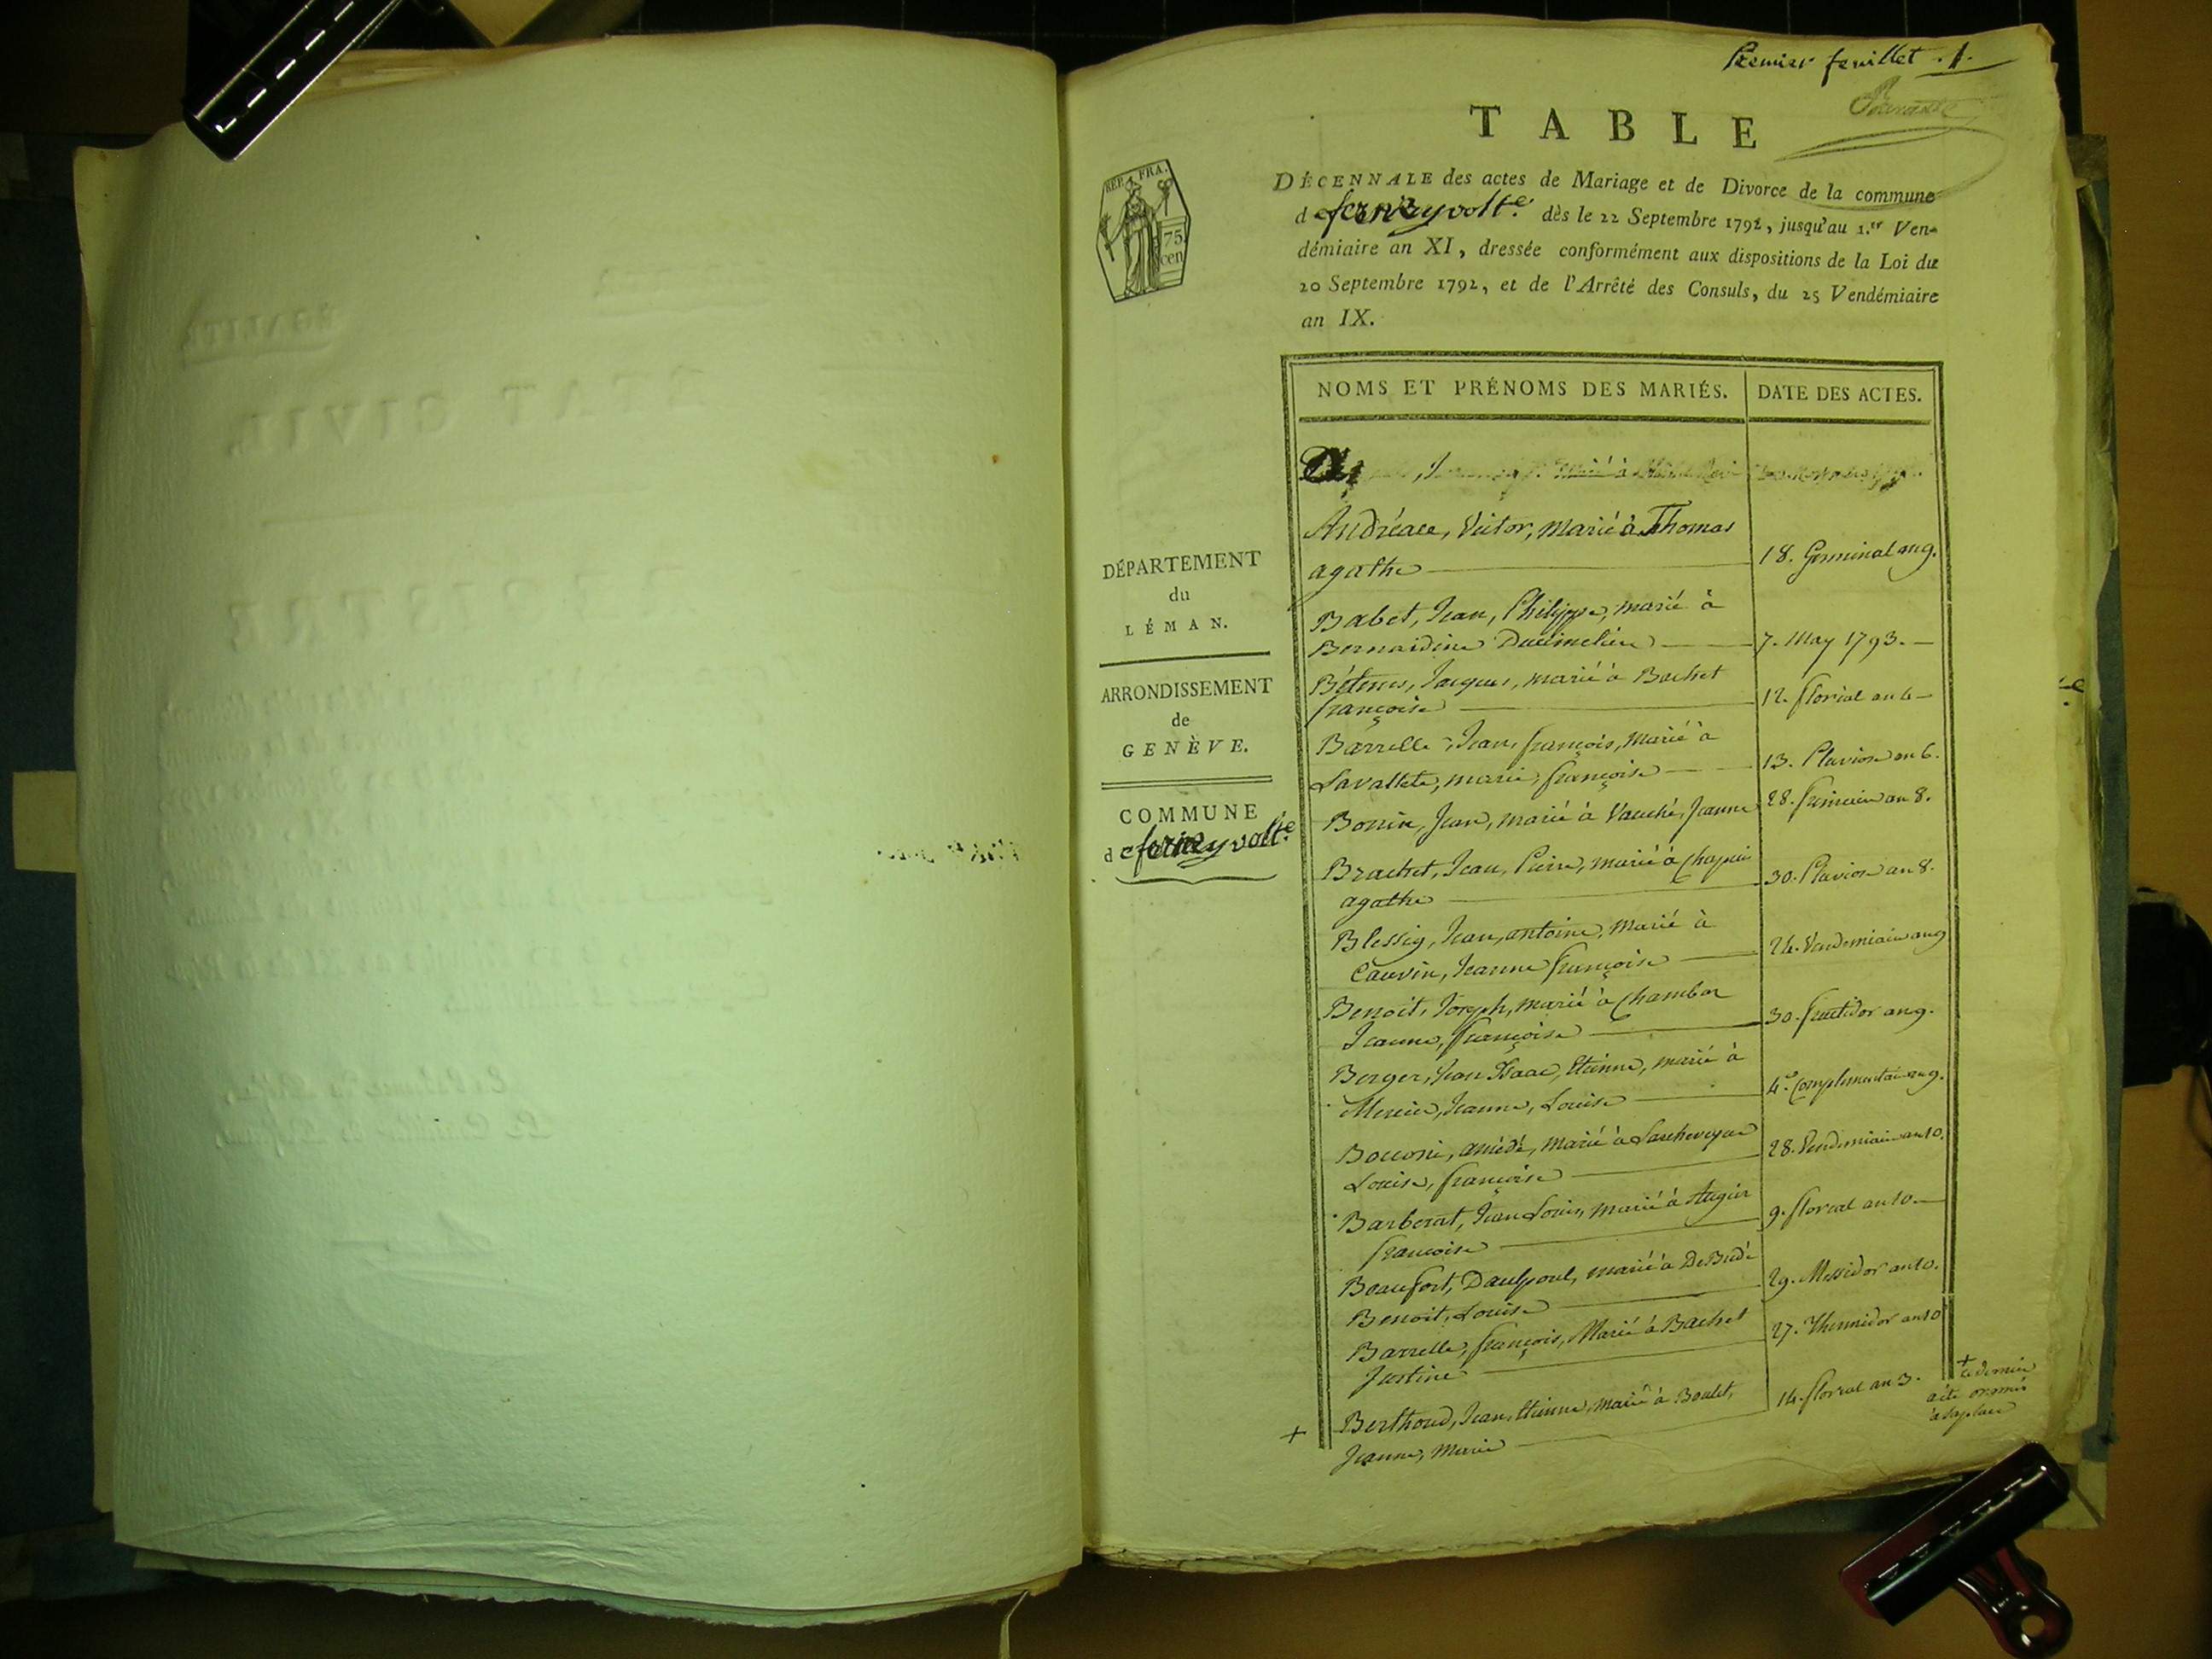 Premier feuillet . 1.
TABLE
REP. FRA.
75
cen
DÉCENNALE des actes de Mariage et de Divorce de la commune
de ferneyvolt.e dès le 22 Septembre 1792, jusqu'au 1.er Ven-
démiaire an XI, dressée conformément aux dispositions de la Loi du
20 Septembre 1792, et de l'Arrêté des Consuls, du 25 Vendémiaire
an IX.
DÉPARTEMENT
du
LÉMAN.
ARRONDISSEMENT
de
GENÈVE.
COMMUNE
de ferneyvolt.e
NOMS ET PRÉNOMS DES MARIÉS. DATE DES ACTES.
Andréace, Victor, marié à Thomas
agathe 18. Germinal an 9.
Babet, Jean, Philippe, marié à
Bernardine 7. May 1793.
Bétems, Jacques, marié à Bachet
françoise 12. floréal an 6
Barrelle, Jean, françois, Marié à
Lavallete, marie, françoise 13. Pluviose an 6.
Bonin, Jean, marié à Vauché, Jeanne 28. frimaire an 8.
Brachet, Jean, Pierre, marié à Chapuis
agathe 30. Pluviose an 8.
Blessig, Jean, antoine, Marié à
Cauvin, Jeanne françoise 24. Vendemiaire an 9
Benoit, Joseph, marié à Chambar
Jeanne, françoise 30. fructidor an 9.
Berger, Jean Isaac, Etienne, marié à
Mercier, Jeanne, Louise 4.e Complementaire an 9.
amédé, marié à
Louise, françoise 28. Vendemiaire an 10.
Barberat, Jean Louis, marié à Augier
francoise 9. floreal an 10.
Beaufort, Daulpoul, marié à DeBudé
Benoit, Louise 29. Messidor an 10.
Barrelle, françois, Marié à Bachet
Justine 27. Thermidor an 10
+ Berthoud, Jean, Etienne, marié à Boulet,
Jeanne, Marie 14. floreal an 3.
+ ce dernier
acte ommis
à sa place